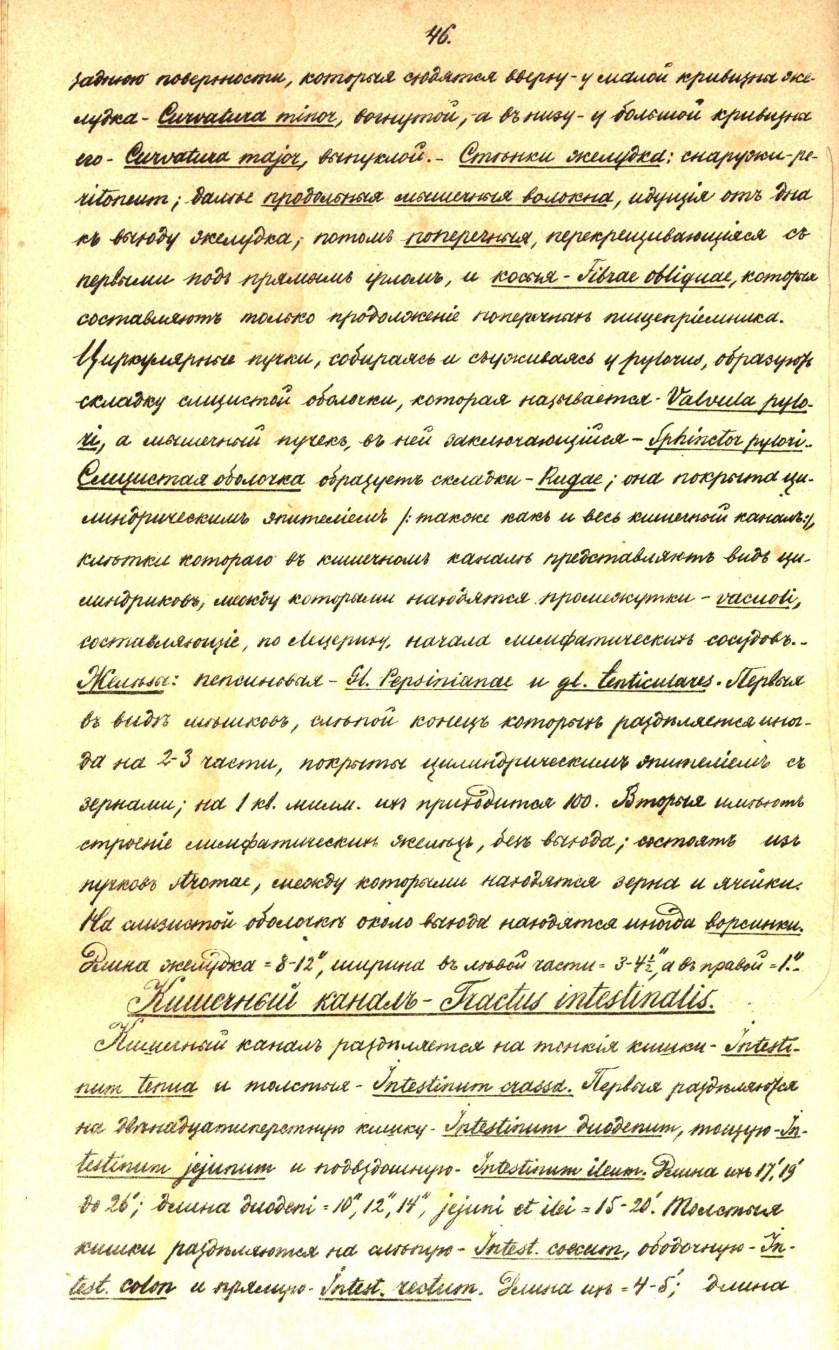 46.
заднюю поверхности, которыя сходятся вверху - у малой кривизны же-
лудка - Curvatura minor, вогнутой, - а въ низу - у большой кривизны
его - Curvatura major, выпуклой. - Стѣнки желудка: снаружи - pe-
ritoneum; далѣе продольныя мышечныя волокна, идущія отъ дна
къ выходу желудка; потомъ поперечныя, перекрещивающіяся съ
первыми подъ прямымъ угломъ, и косыя - Fibrae obliquae, которыя
составляютъ только продолженіе поперечныхъ пищепріемника.
Циркулярные пучки, собираясь и съуживаясь у pylorus, образуютъ
складку слизистой оболочки, которая называется - Valvula pylo-
ri, а мышечный пучекъ, въ ней заключающійся - Sphinctor pylori. -
Слизистая оболочка образуетъ складки - Rugae; она покрыта ци-
линдрическимъ эпителіемъ /:также какъ и весь кишечный каналъ:/,
клѣтки котораго въ кишечномъ каналѣ представляютъ видъ ци-
линдриковъ, между которыми находятся промежутки - vacuoli,
составляющіе, по Лецериху, начала лимфатическихъ сосудовъ. -
Железы: пепсиновыя - Gl. Pepsinianae и gl. lenticulares. Первыя
въ видѣ мѣшковъ, слѣпой конецъ которыхъ раздѣляется иног-
да на 2-3 части, покрыты цилиндрическимъ эпителіемъ съ
зернами; на 1 кв. милм. ихъ приходится 100. Вторыя имѣютъ
строеніе лимфатическихъ железъ, безъ выхода; состоятъ изъ
пучковъ stromae, между которыми находятся зерна и ячейки.
На слизистой оболочкѣ около выхода находятся иногда ворсинки.
Длина желудка = 8-12", ширина въ лѣвой части = 3-4½", а въ правой = 1". -
Кишечный каналъ - Tractus intestinalis.
Кишечный каналъ раздѣляется на тонкія кишки - Intesti-
num tenua и толстыя - Intestinum crassa. Первыя раздѣляются
на двѣнадцатиперстную кишку - Intestinum duodenum, тощую - In-
testinum jejunum и подвздошную - Intestinum ileum. Длина ихъ 17', 19'
до 26'; длина duodeni = 10", 12", 14", jejuni et ilei = 15-20'. Толстыя
кишки раздѣляются на слѣпую - Intest. coecum, ободочную - In-
test. colon и прямую - Intest. rectum. Длина ихъ = 4-5'; длина